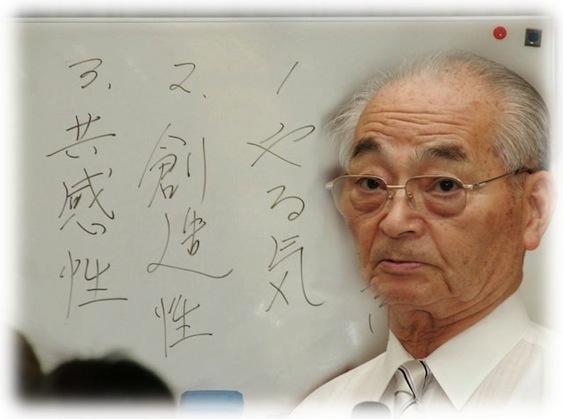 1 やる気
2. 創造性
3. 共感性